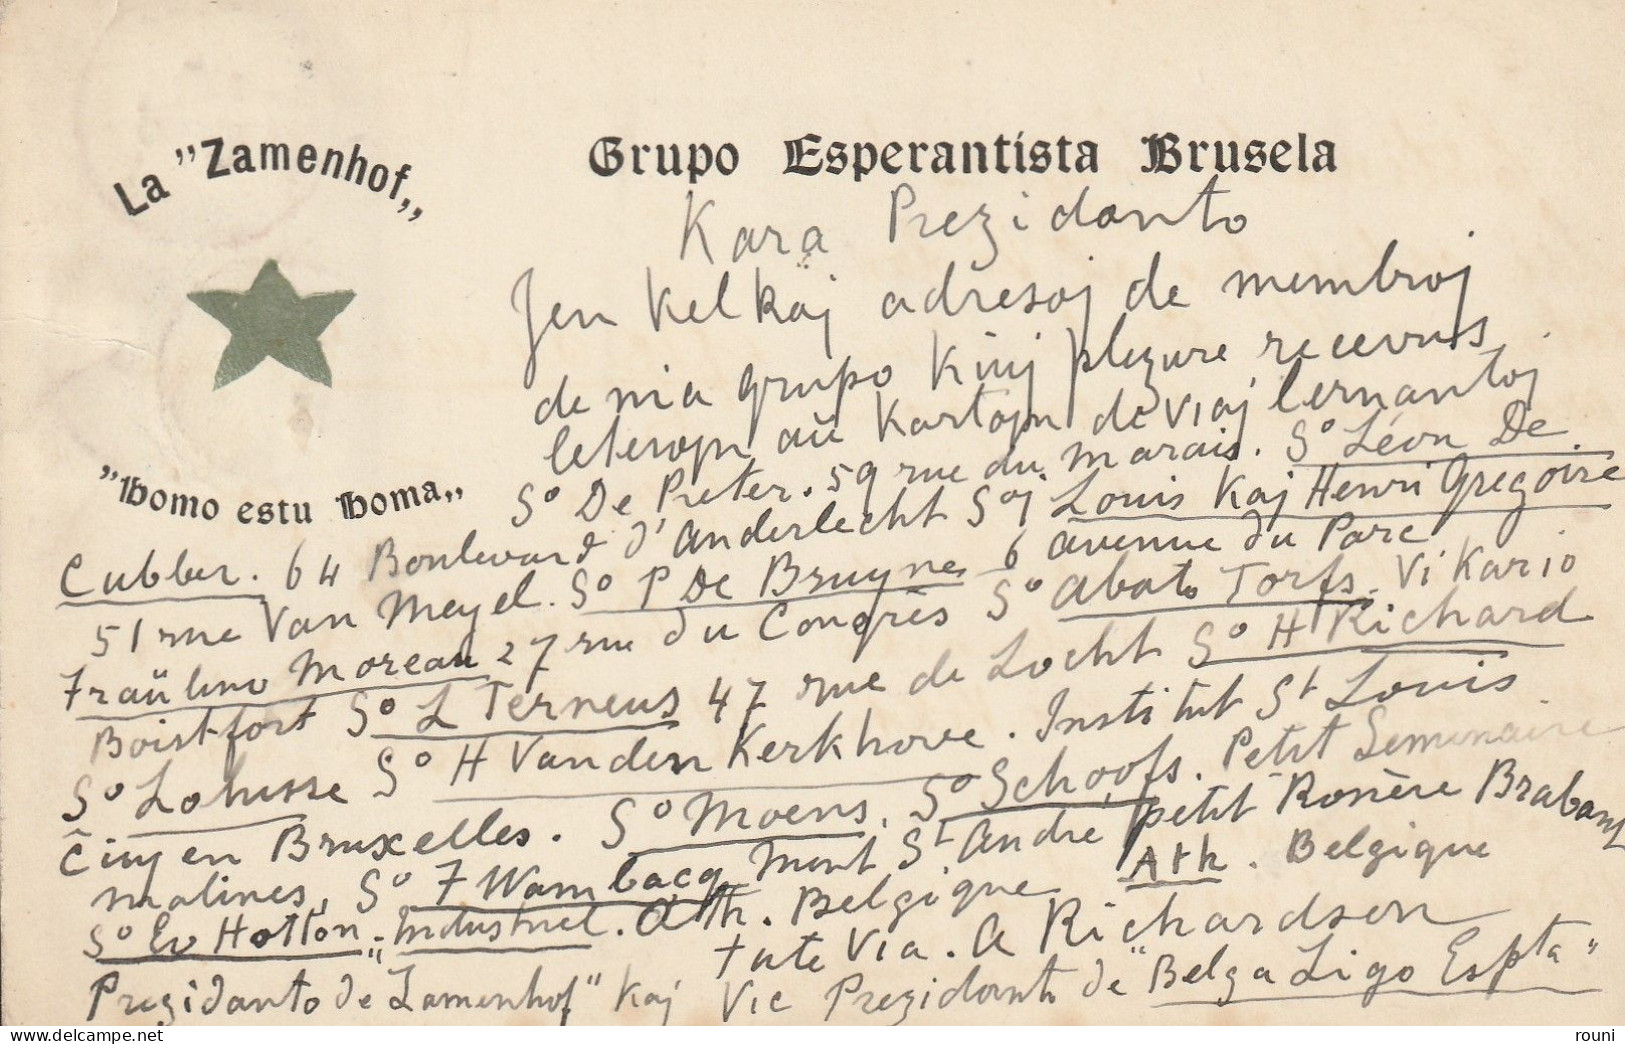 La "Zamenhof„
Grupo Esperantista Brusela
"Homo estu homa„
Kara Prezidanto
Jen kelkaj adresoj de membroj
de mia grupo kiuj plezure recevus
leterojn aŭ kartojn de viaj lernantoj
So De Preter. 59 rue du marais. So Léon De
Cubber. 64 Boulevard d'Anderlecht Soj Louis Kaj Henri Gregoire
51 rue Van Meyel. So P De Bruyne 6 avenue du Parc
Fraŭlino Moreau 27 rue du Congrès So abato Torfs. Vikario
Boistfort So L Terneus 47 rue de Locht So H Richard
So Lohisse So H Vanden Kerkhove. Institut St Louis
ĉiuj en Bruxelles. So Moens. So Schoofs. Petit Seminaire
malines. So F Wambacq Mont St André petit Rosière Brabant
So Ev Hotton. Industriel. Ath. Belgique Ath. Belgique
tute via. A Richardson
Prezidanto de "Zamenhof" kaj Vic Prezidanto de "Belga Ligo Espta"
rouni